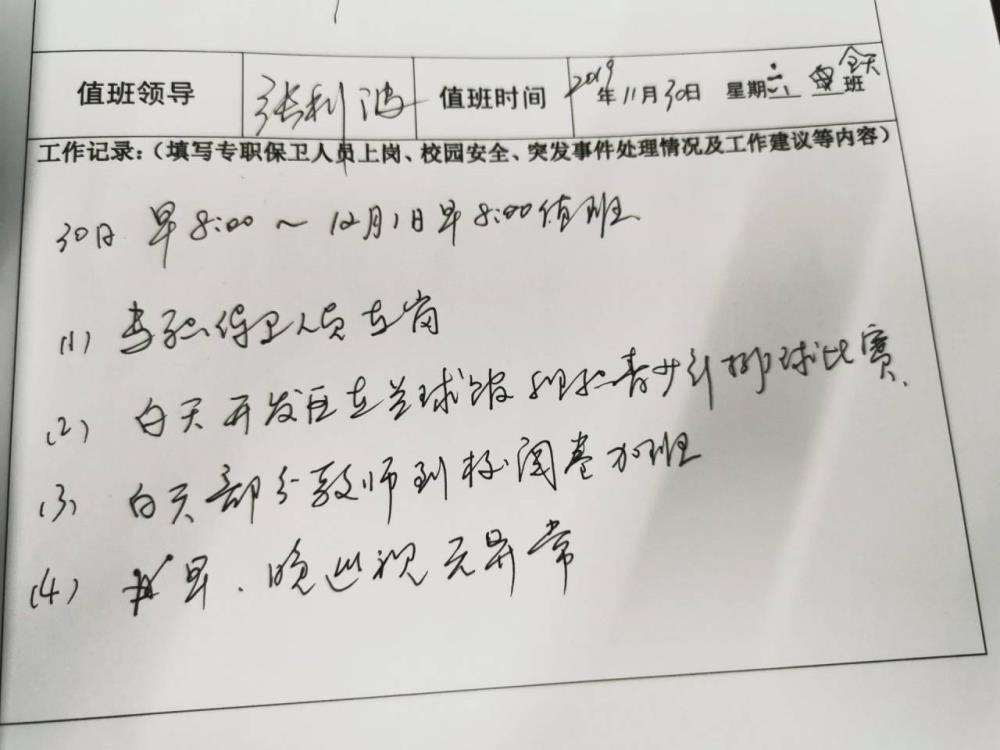 值班领导 张利波 值班时间 2019年11月30日 星期六 全天班
工作记录:(填写专职保卫人员上岗、校园安全、突发事件处理情况及工作建议等内容)
30日 早8:00～12月1日早8:00值班
(1) 专职保卫人员在岗
(2) 白天开发区在兰球馆组织青少年排球比赛、
(3) 白天部分教师到校阅卷加班
(4) 早、晚巡视无异常